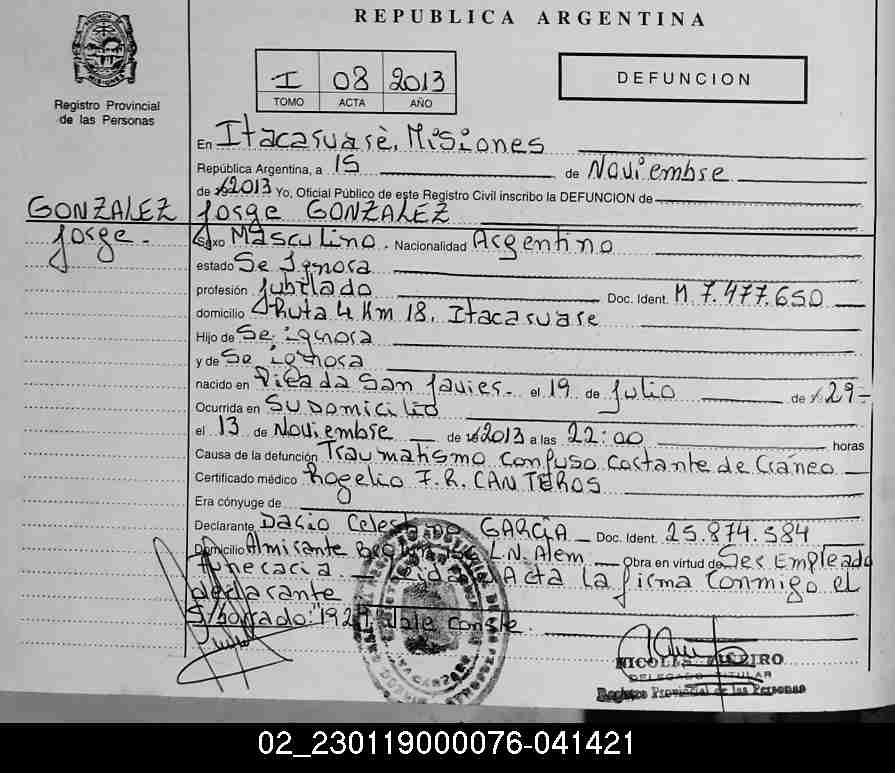 REPUBLICA ARGENTINA
Registro Provincial
de las Personas
I 08 2013
TOMO ACTA AÑO
DEFUNCION
En Itacaruarè, Misiones
República Argentina, a 15 de Noviembre
de 2013 Yo, Oficial Público de este Registro Civil inscribo la DEFUNCION de
GONZALEZ Jorge GONZALEZ
Jorge. Sexo Masculino. Nacionalidad Argentino
estado Se Ignora
profesión Jubilado Doc. Ident. M 7.477.650
domicilio Ruta 4 Km 18. Itacaruare
Hijo de Se ignora
y de Se ignora
nacido en Picada San Javier. el 19 de Julio de 29-
Ocurrida en Su Domicilio
el 13 de Noviembre de 2013 a las 22:00 horas
Causa de la defunción Traumatismo Confuso Cortante de Cráneo
Certificado médico Rogelio F.R. CANTEROS
Era cónyuge de
Declarante Dario GARCÍA Doc. Ident. 25.874.584
Domicilio Almirante L.N. Alem. Obra en virtud de Ser Empleado
Funeraria Acta La firma Conmigo el
declarante
S/borrado: "1929 Vale Conste
DELEGADO TITULAR
Registro Provincial de las Personas
02_230119000076-041421